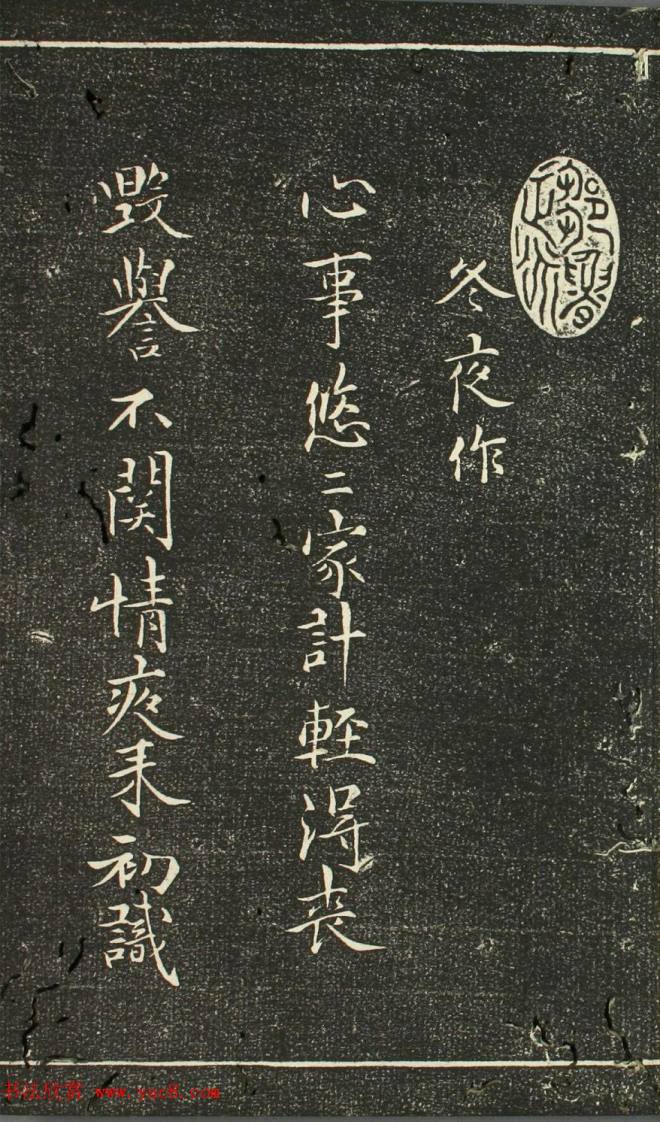 冬夜作
心事悠二家計輊得丧
毀譽不関情疾来初識
书法欣赏 www.yac8.com